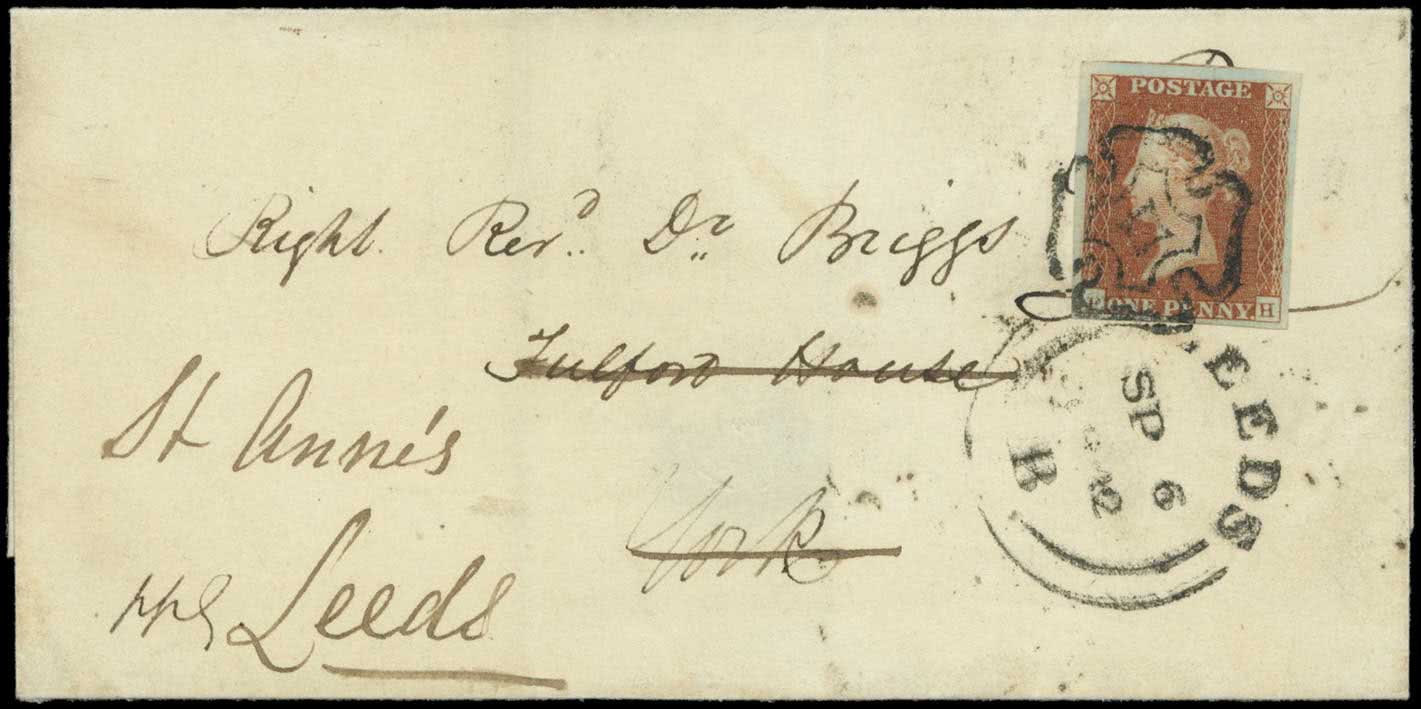 POSTAGE
ONE PENNY H
Right Revd Dr Briggs
Fulford House
York
St Anne's
Leeds
LEEDS
SP 6
B